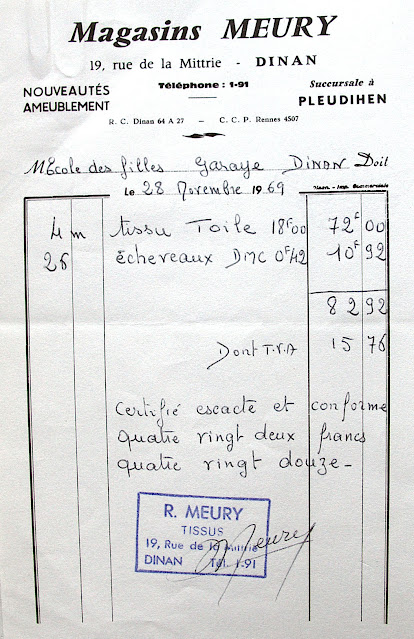 Magasins MEURY
19, rue de la Mittrie - DINAN
NOUVEAUTÉS
AMEUBLEMENT
Téléphone : 1-91
Succursale à
PLEUDIHEN
R. C. Dinan 64 A 27 - C. C. P. Rennes 4507
M Ecole des filles Garaye DINAN Doit
Le 28 Novembre 1969
4 m tissu Toile 18F00 72F 00
26 écheveaux DMC 0F42 10F 92
82 92
Dont T.V.A 15 76
Certifié escacte et conforme
quatre vingt deux francs
quatre vingt douze_
R. MEURY
TISSUS
19, Rue de la Mittrie
DINAN Tél. 1-91
Meury